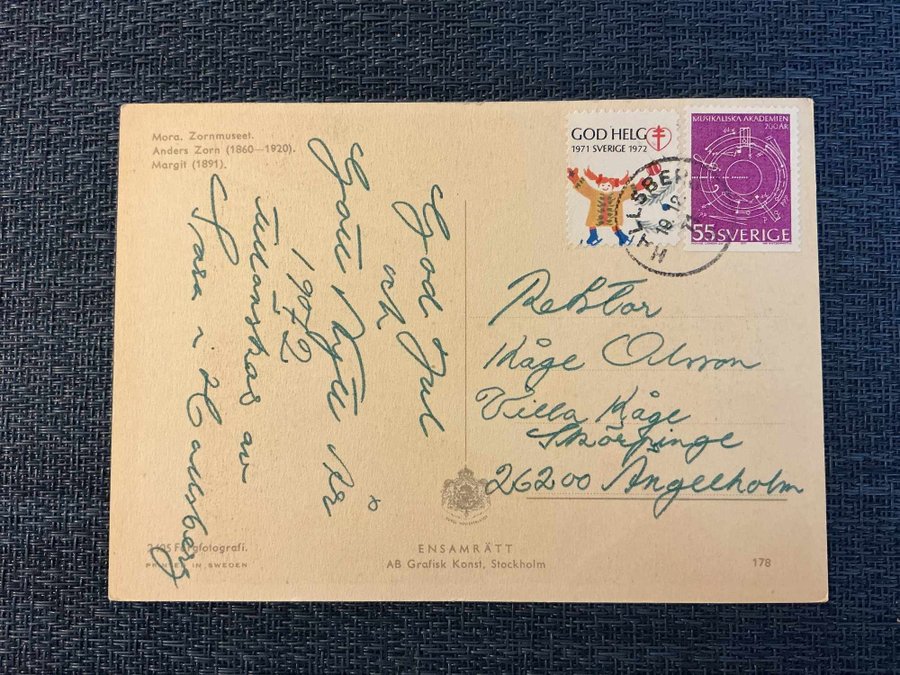 Mora. Zornmuseet.
Anders Zorn (1860—1920).
Margit (1891).
God Jul
och
Gott Nytt År
1972
tillönskas av
Lasse i Hallsberg
GOD HELG
1971 SVERIGE 1972
MUSIKALISKA AKADEMIEN
200 ÅR
55 SVERIGE
HALLSBERG
19.12
71
Rektor
Kåge Olsson
Villa Kåge
Skörpinge
26200 Ängelholm
Färgfotografi.
PRINTED IN SWEDEN
ENSAMRÄTT
AB Grafisk Konst, Stockholm
178